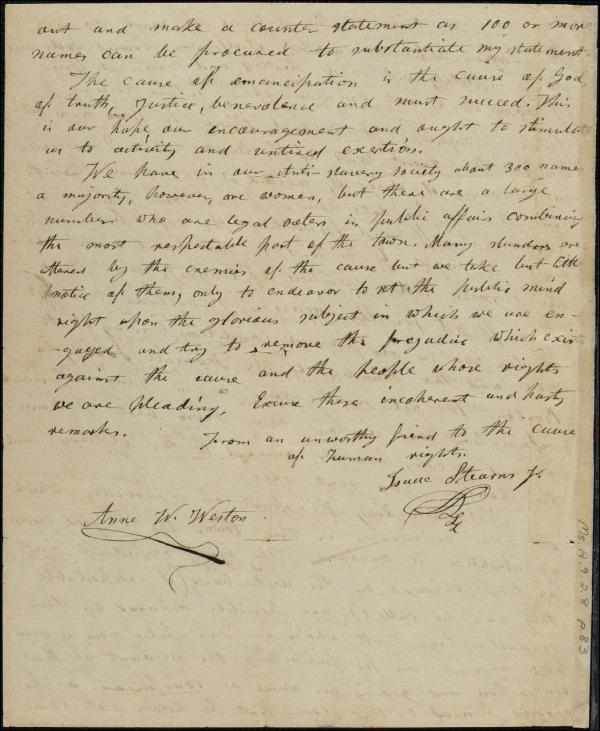 out and make a counter statement as 100 or more
names can be procured to substantiate my statement.
The cause of emancipation is the cause of God
of truth, Justice, benevolence and must succeed. This
is our hope, our encouragement and ought to stimulate
us to activity and untired exertion.
We have in our Anti-slavery society about 300 name
a majority, however, are women, but there are a large
number who are legal voters in public affairs combining
the most respectable part of the town. Many slanders are
uttered by the enemies of the cause but we take but little
notice of them, only to endeavor to set the public mind
right upon the glorious subject in which we are en-
-gaged and try to remove the prejudice which exis
against the cause and the people whose rights
we are pleading. Excuse these incoherent and hasty
remarks.
From an unworthy friend to the cause
of human rights.
Isaac Stearns Jr.
Anne W. Weston.
Ms. A. 9. 2 8 p 83